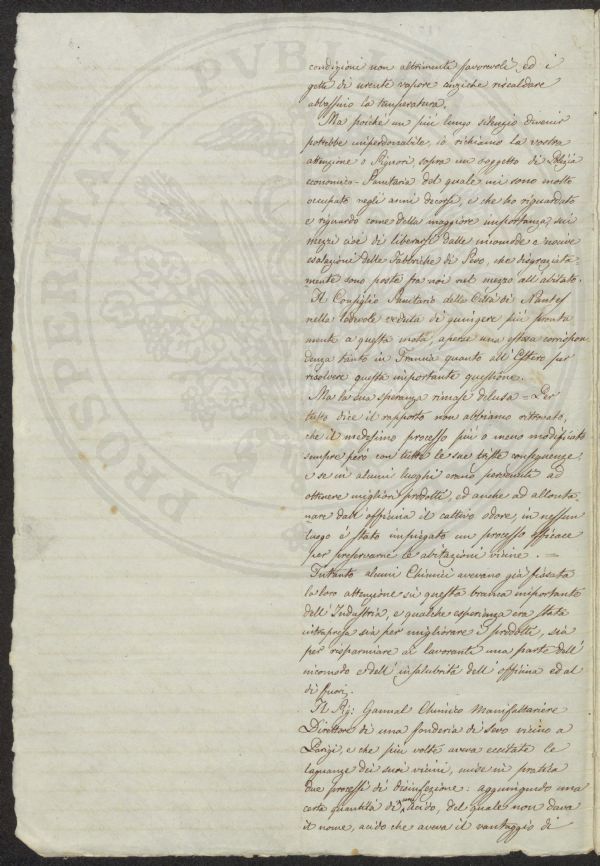 condizioni non altrimenti favorevoli, ed i
getti di urente vapore anziche riscaldare
abbassino la temperatura.
Ma poichè un più lungo silenzio divenir
potrebbe imperdonabile, io richiamo la vostra
attenzione o Signori, sopra un soggetto di Polizia
economico-Sanitaria del quale mi sono molto
occupato negli anni decorsi, e che ho riguardato
e riguardo come della maggiore importanza, sui
mezzi cioè di liberarsi dalle incomode e nocive
esalazioni delle Fabbriche di Sevo, che disgraziata-
mente sono poste fra noi nel mezzo all'abitato.
Il Consiglio Sanitario della Città di Nantes
nella lodevole veduta di giungere più pronta
mente a questa meta, aperse una estesa corrispon
denza tanto in Francia quanto all'Estero per
risolvere questa importante questione.
Ma la sua speranza rimase delusa = Per
tutto dice il rapporto non abbiamo ritrovato,
che il medesimo processo più o meno modificato
sempre però con tutte le sue triste conseguenze;
e se in alcuni luoghi erano pervenuti ad
ottenere migliori prodotti, ed anche ad allonta
nare dall'officina il cattivo odore, in nessun
luogo è stato impiegato un processo efficace
per preservarne le abitazioni vicine. =
Intanto alcuni Chimici avevano già fissata
la loro attenzione su questa branca importante
dell'Industria, e qualche esperienza era stata
intrapresa sia per migliorare i prodotti, sia
per risparmiare ai lavoranti una parte dell'
incomodo e dell'insalubrità dell'officina ed al
di fuori.
Il Sig: Gannal Chimico Manifattoriere
Direttore di una fonderia di Sevo vicino a
Parigi e che più volte aveva eccitate le
lagnanze dei suoi vicini, mise in pratica
due processi di disinfezione: aggiungendo una
certa quantità di un acido, del quale non dava
il nome, acido che aveva il vantaggio di
PROSPERITATI PVB